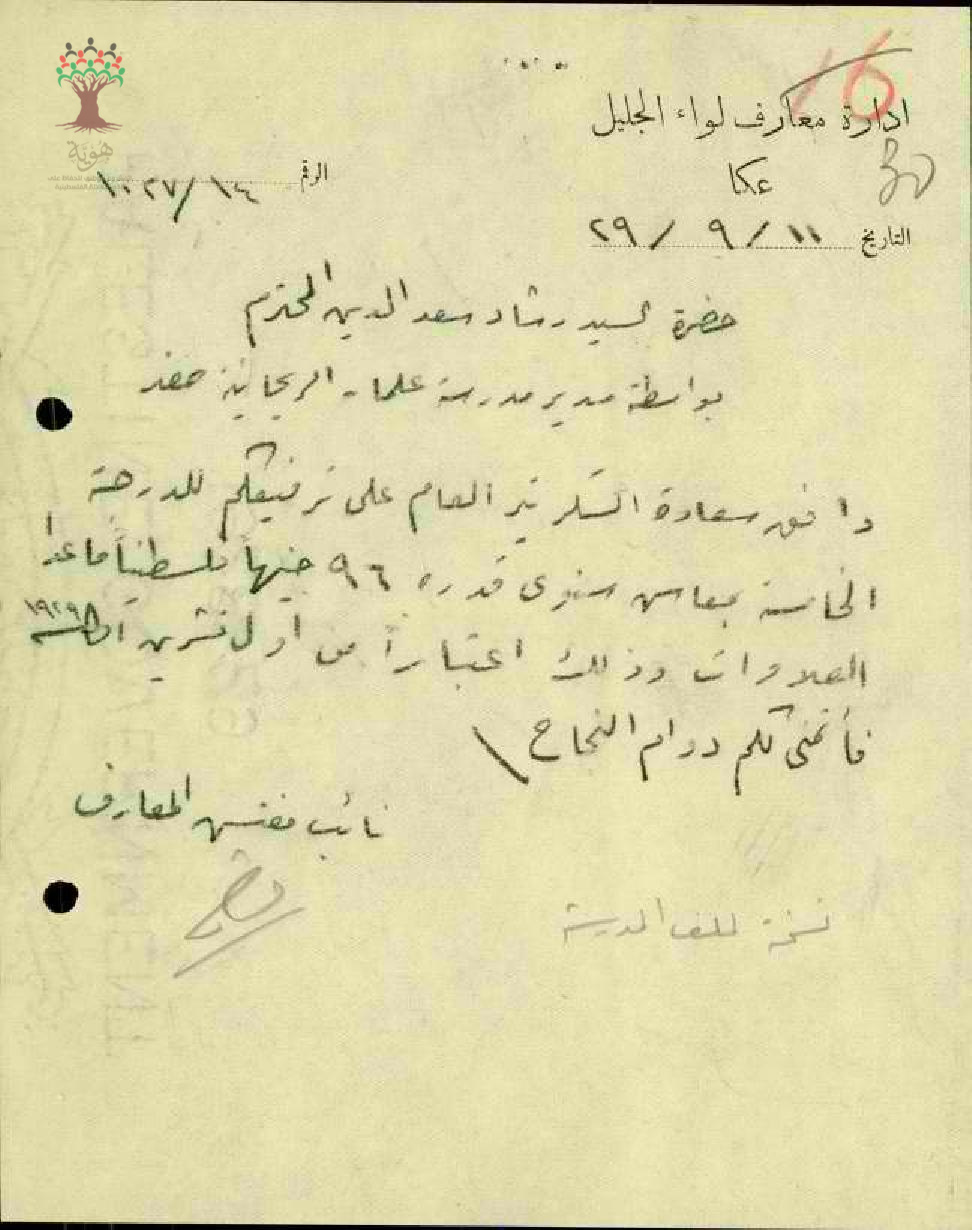 16
ادارة معارف لواء الجليل
عكا
الرقم ١٠٢٧/١٤
التاريخ ١١ / ٩ / ٢٩
هوية
حضرة السيد رشاد سعد الدين المحترم
بواسطة مدير مدرسة علما - الريحانية صفد
وافق سعادة السكرتير العام على ترفيعكم للدرجة
الخامسة بمعاش سنوي قدره ٩٦ جنيهاً فلسطينياً ماعدا
العلاوات وذلك اعتباراً من اول تشرين اول سنة ١٩٢٩
فأتمنى لكم دوام النجاح
نائب مفتش المعارف
نسخة لملف المدرسة